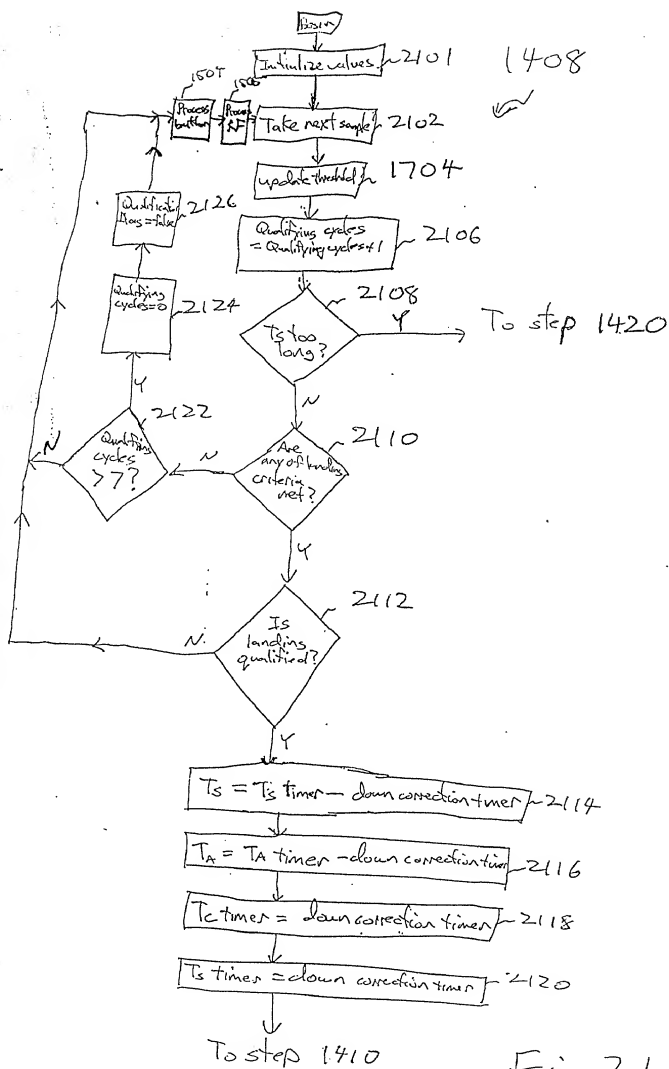 Begin
Initialize values
2101
1408
1504
Process
button
1506
Process
RF
Take next sample
2102
update threshold
1704
Qualifying cycles
= Qualifying cycles + 1
2106
2108
Ts too
long?
Y
To step 1420
N
2110
Are
any of landing
criteria
met?
N
2122
Qualifying
cycles
> 7?
N
Y
Qualifying
cycles=0
2124
Qualification
flags=false
2126
Y
2112
Is
landing
qualified?
N
Y
Ts = Ts timer - down correction timer
2114
TA = TA timer - down correction timer
2116
Tc timer = down correction timer
2118
Ts timer = down correction timer
2120
To step 1410